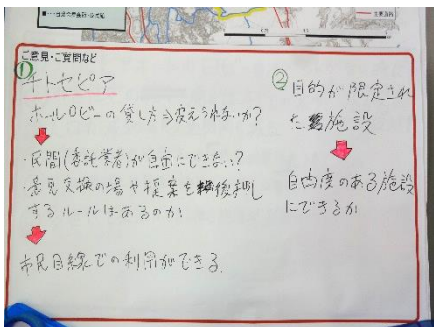 ご意見・ご質問など
①
チトセピア
ホールロビーの貸し方を変えられないか?
・民間(委託業者)が自由にできない?
・意見交換の場や提案を後押し
するルールはあるのか
市民目線での利用ができる
②
目的が限定され
た施設
自由度のある施設
にできるか